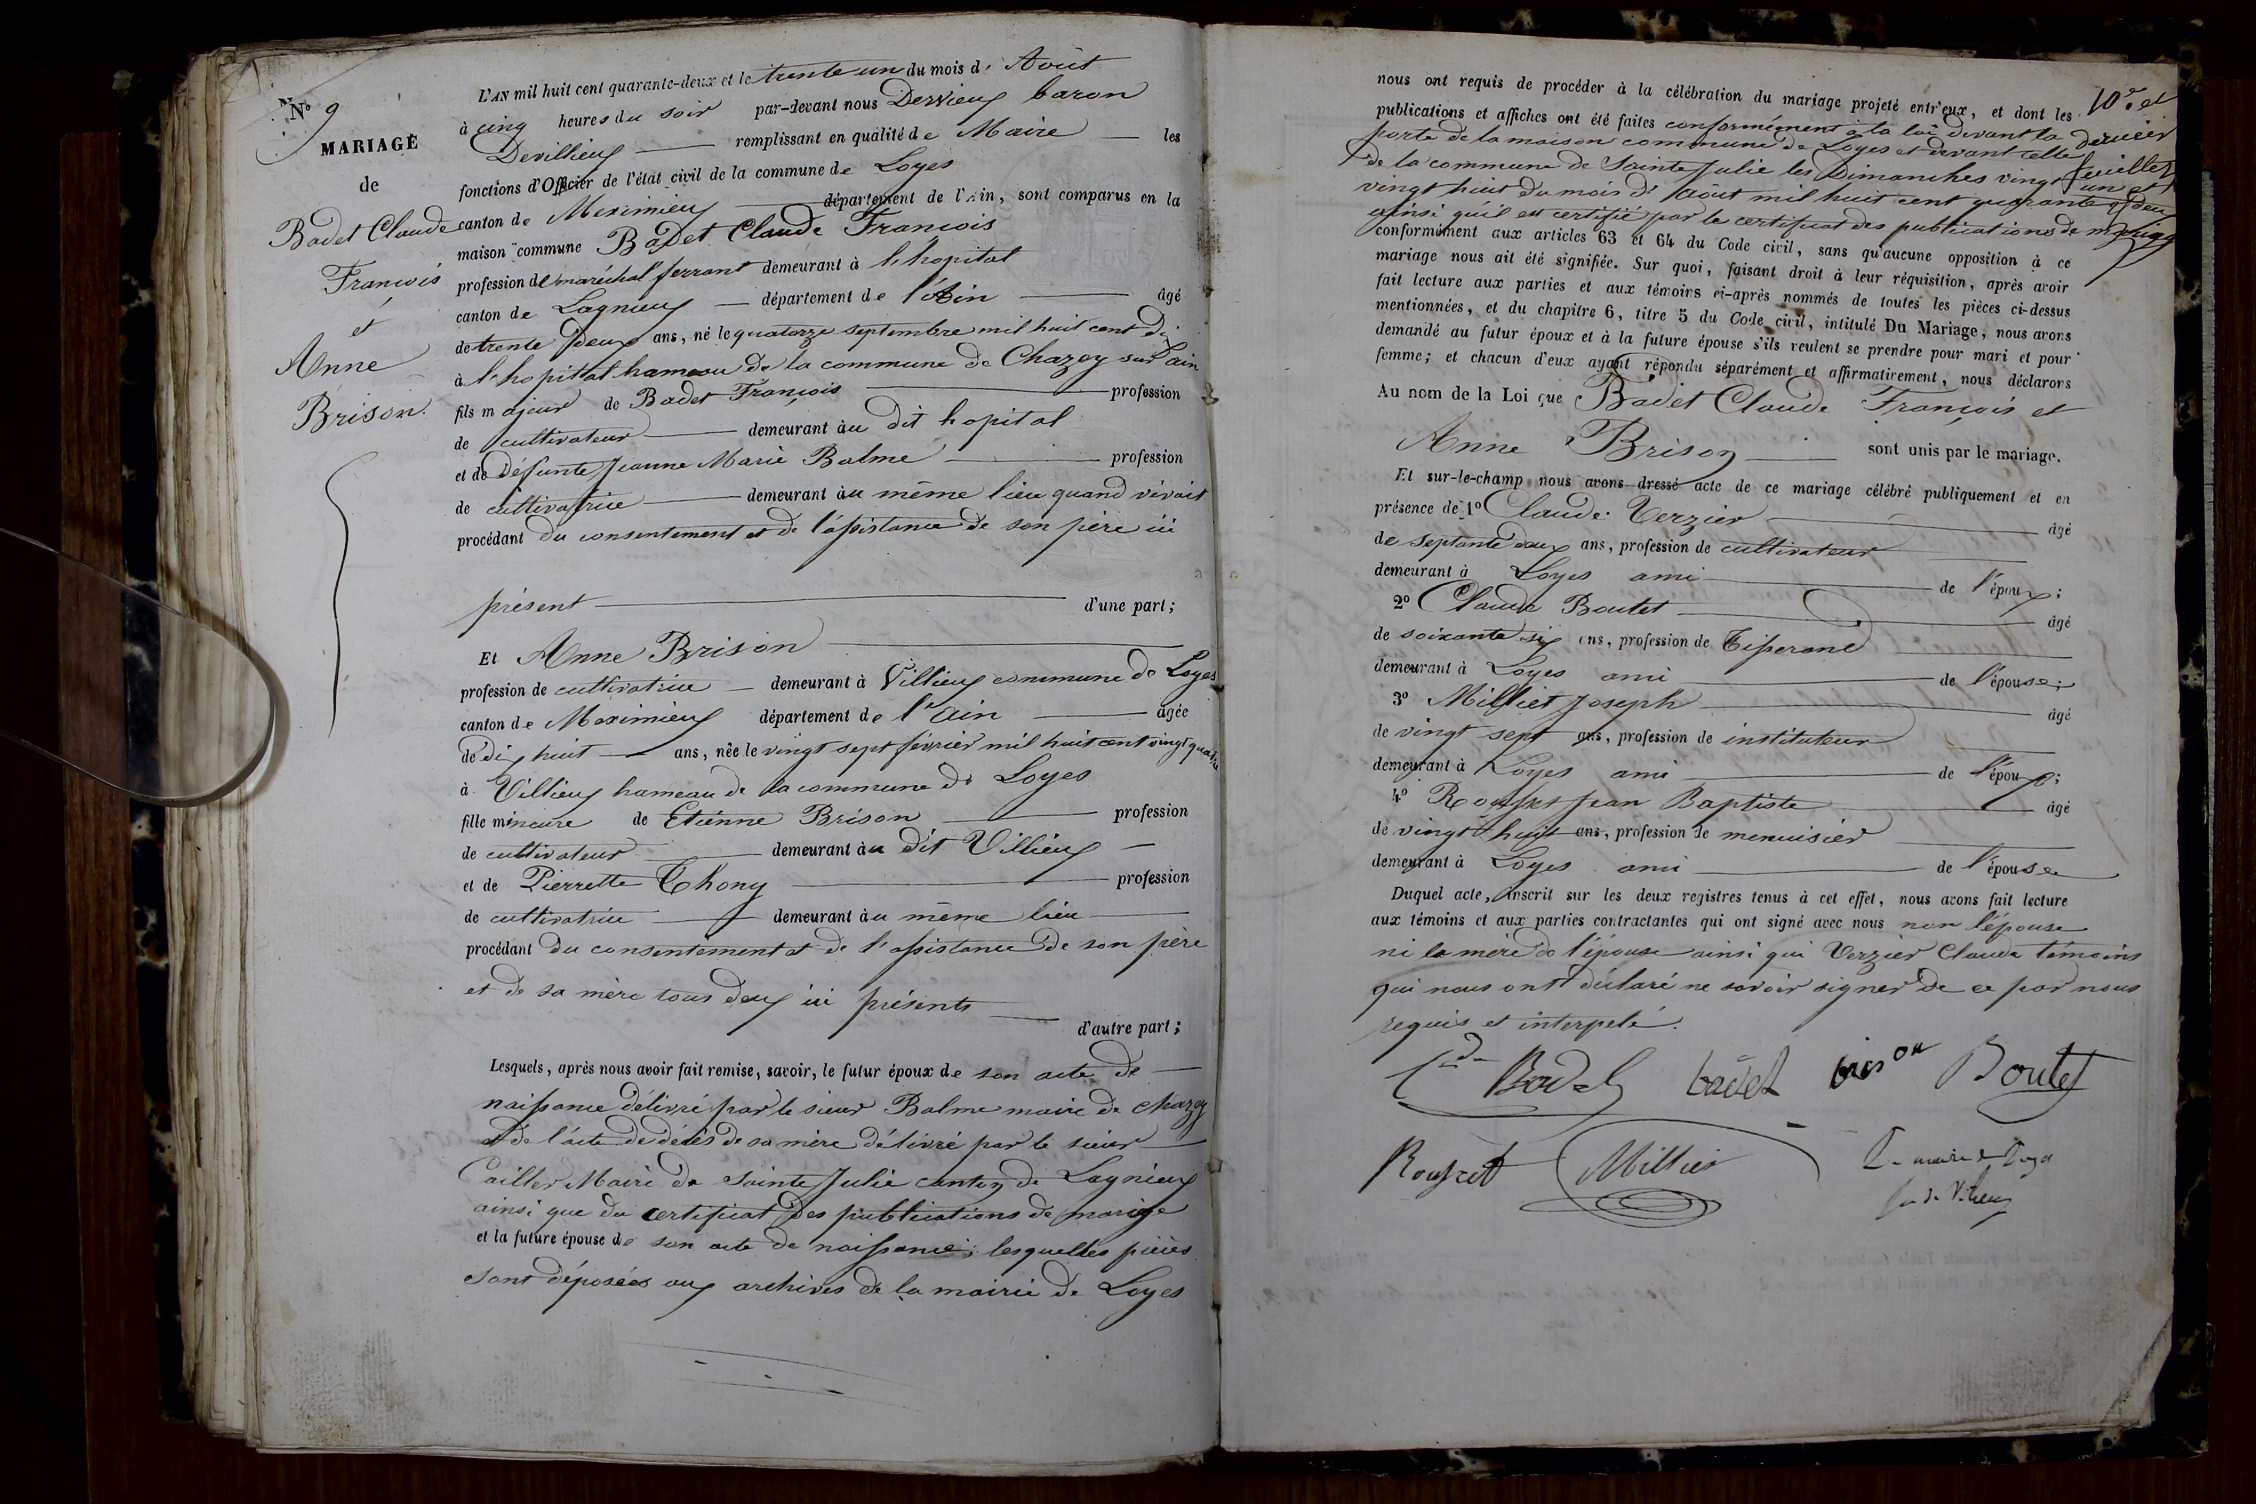 N° 9
MARIAGE
de
Badet Claude
François
et
Anne
Brison.
L'AN mil huit cent quarante-deux et le trente un du mois d' Août
à cinq heures du soir par-devant nous Dervieux baron
Devillieux remplissant en qualité de Maire les
fonctions d'Officier de l'état civil de la commune de Loyes
canton de Meximieux département de l'Ain, sont comparus en la
maison commune Badet Claude François
profession de maréchal ferrant demeurant à l'hopital
canton de Lagnieux département de l'Ain âgé
de trente deux ans, né le quatorze septembre mil huit cent dix
à l'hopital hameau de la commune de Chazey sur l'ain
fils majeur de Badet François profession
de cultivateur demeurant àu dit hopital
et de Défunte Jeanne Marie Balme profession
de cultivatrice demeurant àu même lieu quand vivait
procédant du consentement et de l'assistance de son père ici
présent d'une part;
Et Anne Brison
profession de cultivatrice demeurant à Villieux commune de Loyes
canton de Meximieux département de l'Ain âgée
de dix huit ans, née le vingt sept février mil huit cent vingt quatre
à Villieux hameau de la commune de Loyes
fille mineure de Etienne Brison profession
de cultivateur demeurant àu dit Villieux
et de Pierrette Thony profession
de cultivatrice demeurant àu même lieu
procédant du consentement et de l'assistance de son père
et de sa mère tous deux ici présents
d'autre part;
Lesquels, après nous avoir fait remise, savoir, le futur époux de son acte de
naissance délivré par le sieur Balme maire de Chazey
et de l'acte de décès de sa mère délivré par le sieur
Cailler Maire de Sainte Julie canton de Lagnieux
ainsi que du certificat des publications de mariage
et la future épouse de son acte de naissance; lesquelles pièces
sont déposées aux archives de la mairie de Loyes
10e et
dernier
feuillet
nous ont requis de procéder à la célébration du mariage projeté entr'eux, et dont les
publications et affiches ont été faites conformément à la loi devant la
porte de la maison commune de Loyes et devant celle
de la commune de Sainte Julie les Dimanches vingt un et
vingt huit du mois d' Août mil huit cent quarante deux
ainsi qu'il est certifié par le certificat des publications de mariage
conformément aux articles 63 et 64 du Code civil, sans qu'aucune opposition à ce
mariage nous ait été signifiée. Sur quoi, faisant droit à leur réquisition, après avoir
fait lecture aux parties et aux témoins ci-après nommés de toutes les pièces ci-dessus
mentionnées, et du chapitre 6, titre 5 du Code civil, intitulé Du Mariage, nous avons
demandé au futur époux et à la future épouse s'ils veulent se prendre pour mari et pour
femme; et chacun d'eux ayant répondu séparément et affirmativement, nous déclarons
Au nom de la Loi que Badet Claude François et
Anne Brison sont unis par le mariage.
Et sur-le-champ nous avons dressé acte de ce mariage célébré publiquement et en
présence de 1° Claude Verzier âgé
de septante deux ans, profession de cultivateur
demeurant à Loyes ami de l'époux;
2° Claude Boutet âgé
de soixante six ans, profession de Tisserand
demeurant à Loyes ami de l'épouse;
3° Milliet Joseph âgé
de vingt sept ans, profession de instituteur
demeurant à Loyes ami de l'époux;
4° Rousset Jean Baptiste âgé
de vingt huit ans, profession de menuisier
demeurant à Loyes ami de l'épouse
Duquel acte, inscrit sur les deux registres tenus à cet effet, nous avons fait lecture
aux témoins et aux parties contractantes qui ont signé avec nous non l'épouse
ni la mère de l'épouse ainsi que Verzier Claude témoins
qui nous ont déclaré ne savoir signer de ce par nous
requis et interpelé.
Cde Badet badet brison Boutet
Rousset Milliet Le maire de Loyes